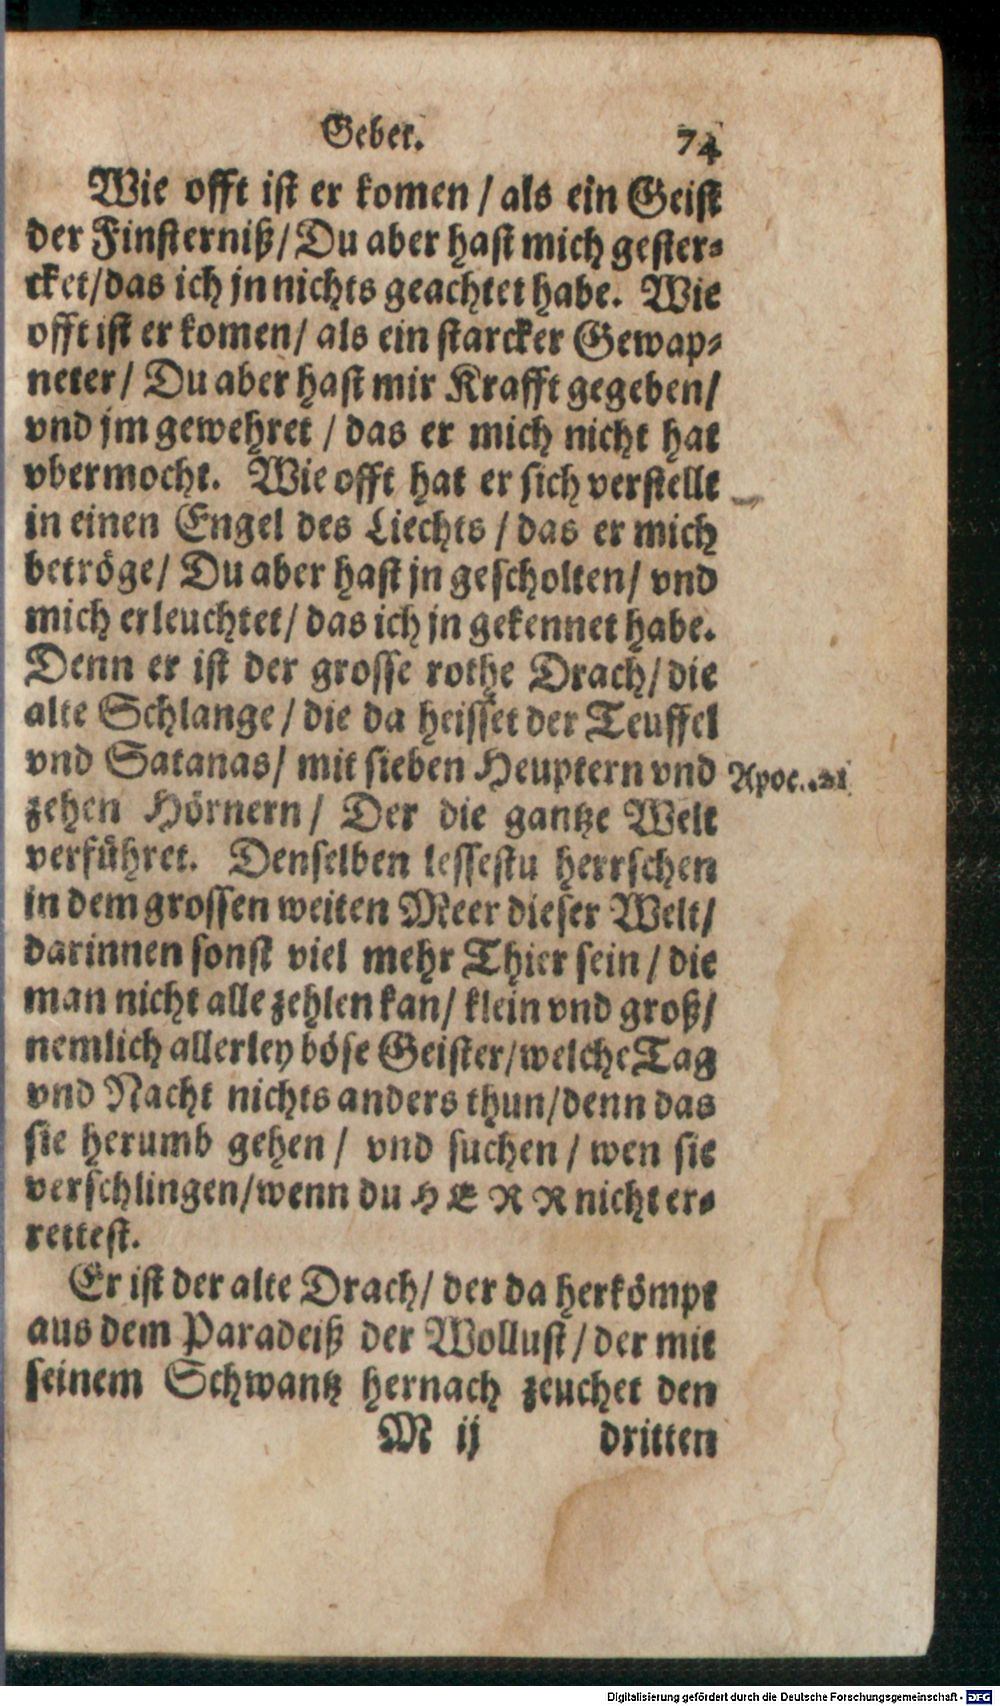 Gebet. 74
Wie offt ist er komen / als ein Geist
der Finsterniß / Du aber hast mich gester-
cket / das ich jn nichts geachtet habe. Wie
offt ist er komen / als ein starcker Gewap-
neter / Du aber hast mir Krafft gegeben /
vnd jm gewehret / das er mich nicht hat
vbermocht. Wie offt hat er sich verstellt
in einen Engel des Liechts / das er mich
betröge / Du aber hast jn gescholten / vnd
mich erleuchtet / das ich jn gekennet habe.
Denn er ist der grosse rothe Drach / die
alte Schlange / die da heisset der Teuffel
vnd Satanas / mit sieben Heuptern vnd Apoc. 21
zehen Hörnern / Der die gantze Welt
verführet. Denselben lessestu herrschen
in dem grossen weiten Meer dieser Welt /
darinnen sonst viel mehr Thier sein / die
man nicht alle zehlen kan / klein vnd groß /
nemlich allerley böse Geister / welche Tag
vnd Nacht nichts anders thun / denn das
sie herumb gehen / vnd suchen / wen sie
verschlingen / wenn du HERR nicht er-
rettest.
Er ist der alte Drach / der da herkömpt
aus dem Paradeiß der Wollust / der mit
seinem Schwantz hernach zeuchet den
M ij dritten
Digitalisierung gefördert durch die Deutsche Forschungsgemeinschaft - DFG